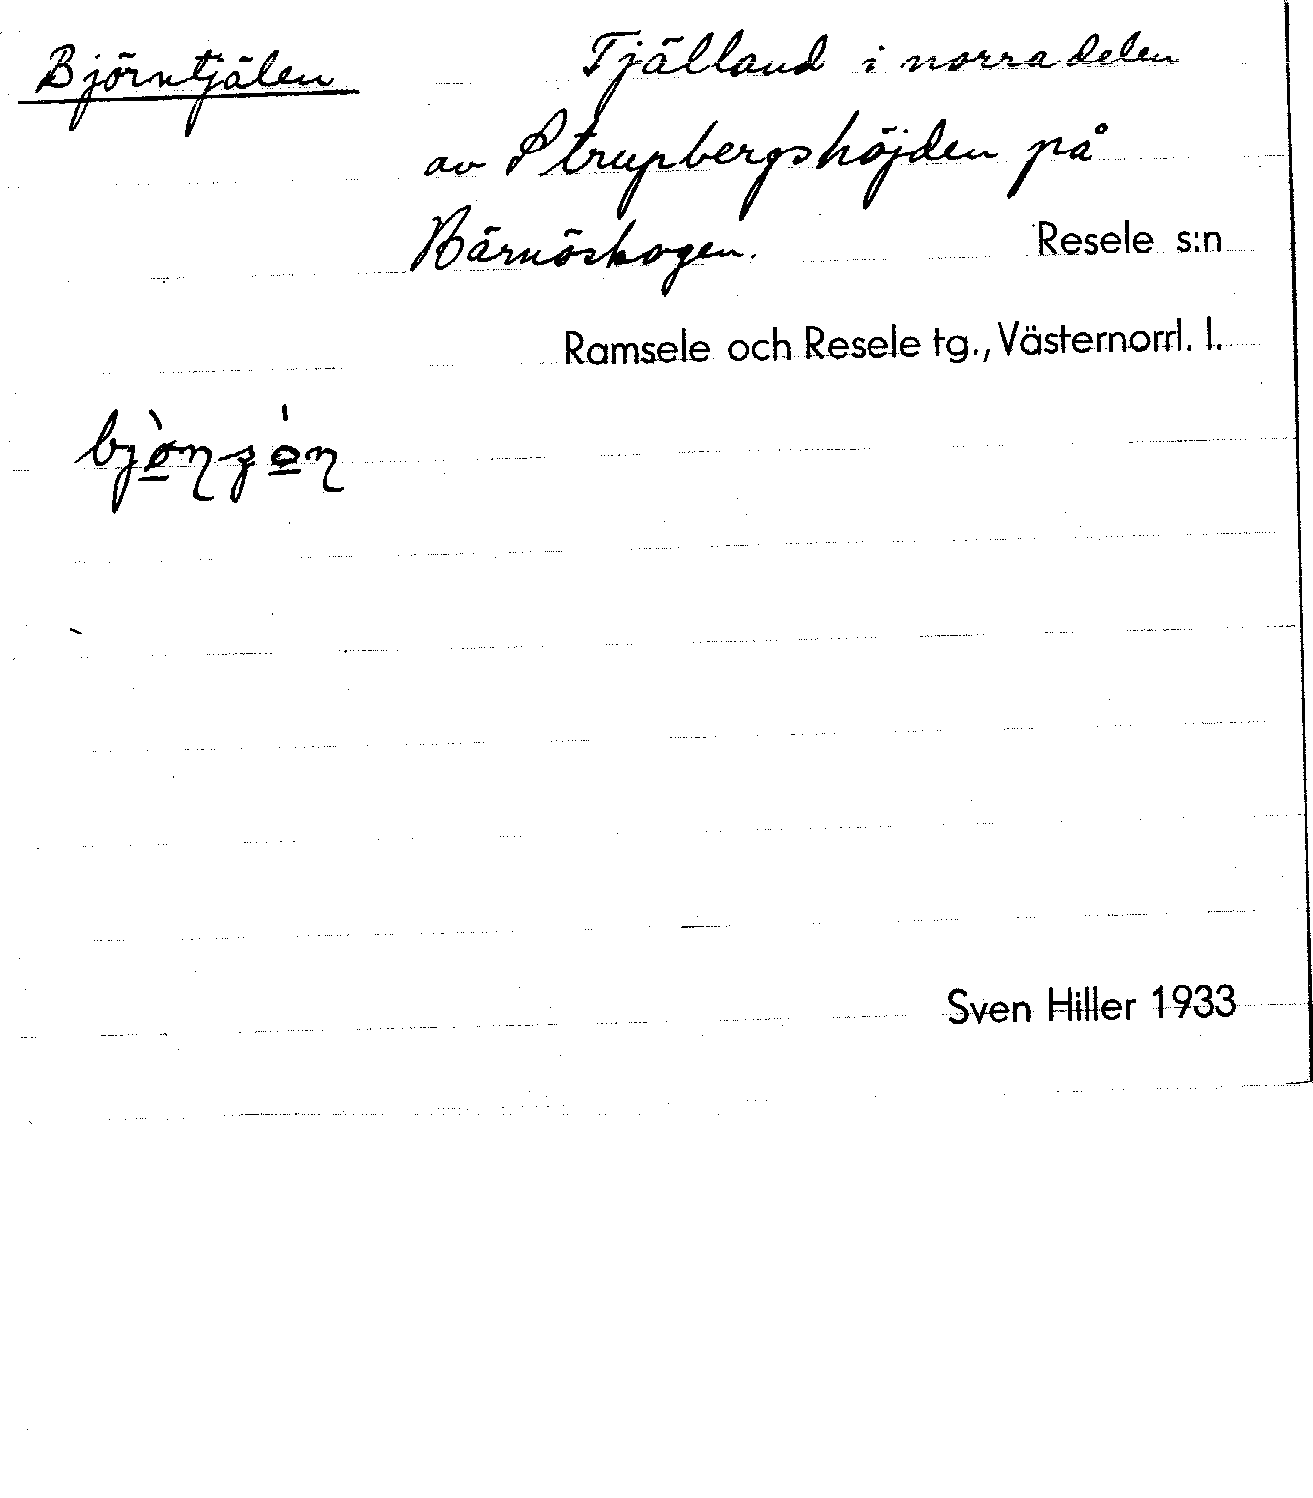 Björntjälen Tjälland i norra delen
av Strupbergshöjden på
Bärnöskogen. Resele s:n
Ramsele och Resele tg., Västernorrl. l.
Sven Hiller 1933